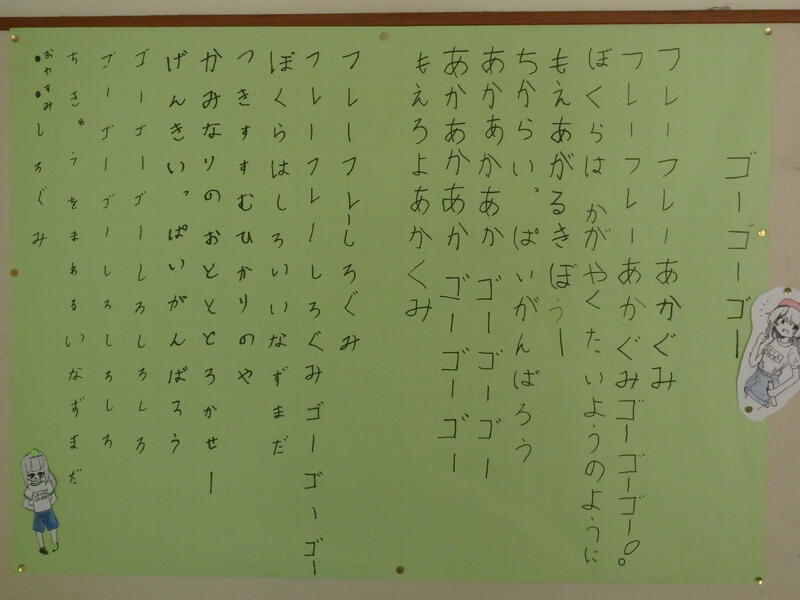 ゴーゴーゴー
フレーフレーあかぐみ
フレーフレーあかぐみゴーゴーゴー!。
ぼくらはかがやくたいようのように
もえあがるきぼうー
ちからいっぱいがんばろう
あかあかあか ゴーゴーゴー
あかあかあか ゴーゴーゴー
もえろよあかくみ
フレーフレーしろぐみ
フレーフレーしろぐみゴーゴーゴー
ぼくらはしろいいなずまだ
つきすすむひかりのや
かみなりのおとととろかせー
げんきいっぱいがんばろう
ゴーゴーゴーしろしろしろ
ゴーゴーゴーしろしろしろ
ちきゅうをまあるいなずまだ
おやすみ
しろぐみ